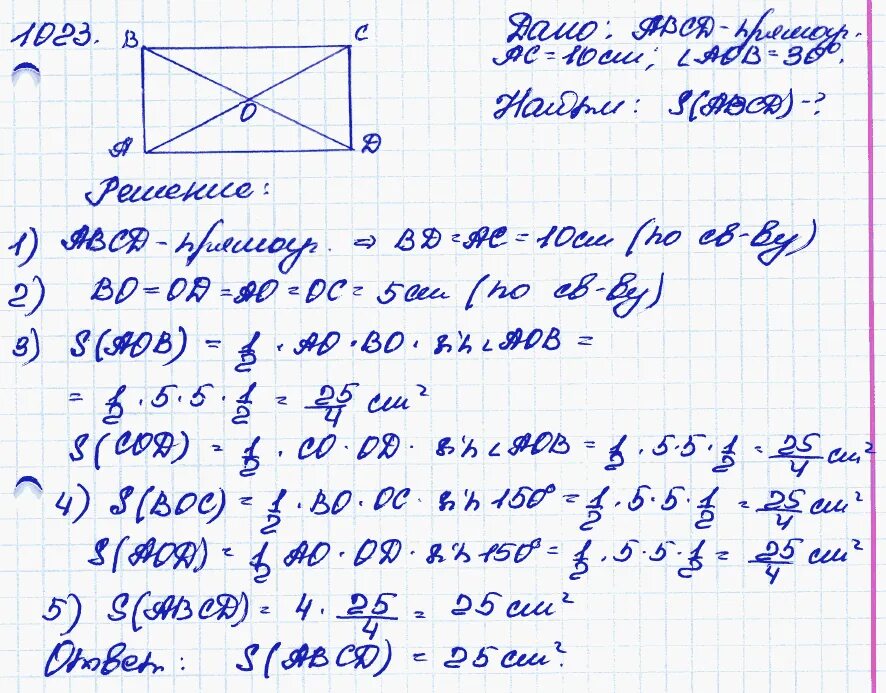 1023. B C Дано: ABCD - прямоуг.
AC = 10 см; ∠AOB = 30°.
O
Найти: S(ABCD) - ?
A D
Решение:
1) ABCD - прямоуг. ⇒ BD = AC = 10 см (по св-ву)
2) BO = OD = AO = OC = 5 см (по св-ву)
3) S(AOB) = 1/2 · AO · BO · sin ∠AOB =
= 1/2 · 5 · 5 · 1/2 = 25/4 см²
S(COD) = 1/2 · CO · OD · sin ∠AOB = 1/2 · 5 · 5 · 1/2 = 25/4 см²
4) S(BOC) = 1/2 · BO · OC · sin 150° = 1/2 · 5 · 5 · 1/2 = 25/4 см²
S(AOD) = 1/2 AO · OD · sin 150° = 1/2 · 5 · 5 · 1/2 = 25/4 см²
5) S(ABCD) = 4 · 25/4 = 25 см²
Ответ: S(ABCD) = 25 см².